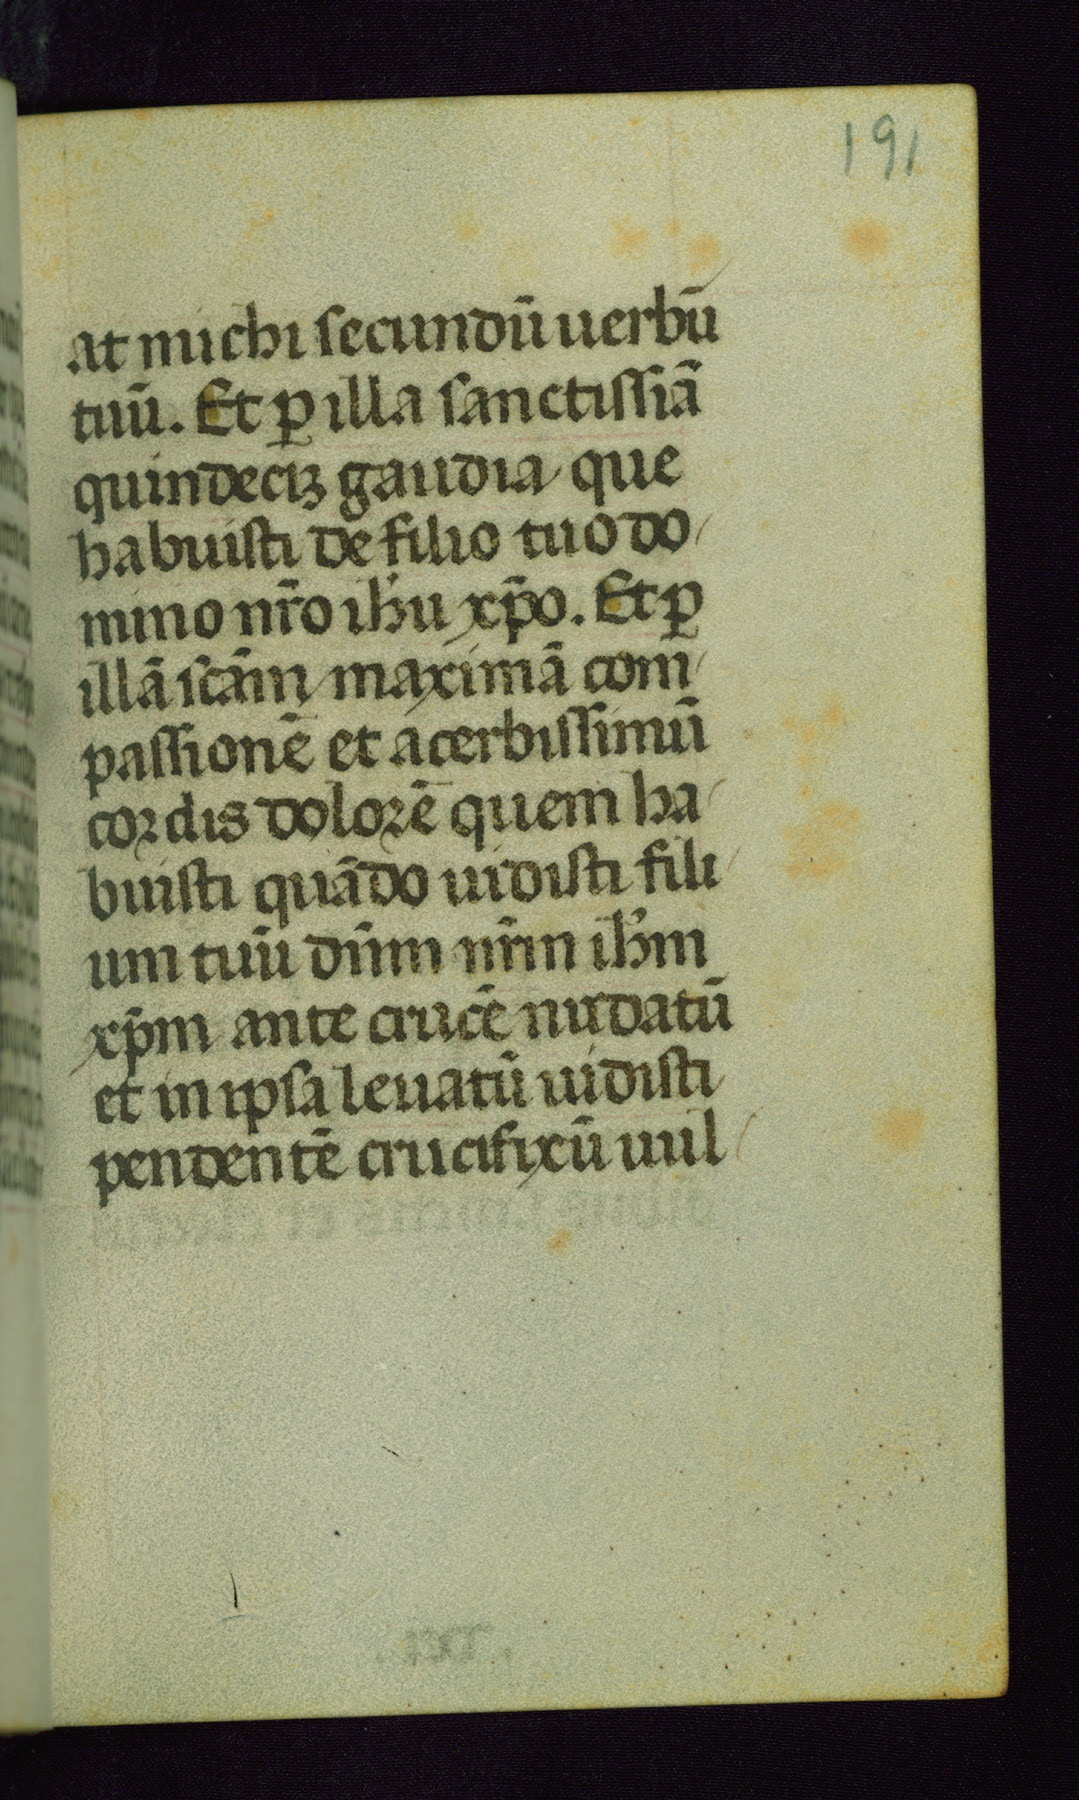 191
at michi secundū uerbū
tuū. Et ꝑ illa sanctissiā
quindecꝫ gaudia que
habuisti de filio tuo do
mino nr̄o ih̄u xp̄o. Et ꝑ
illā scām maximā com
passionē et acerbissimū
cordis dolorē quem ha
buisti quādo uidisti fili
um tuū dn̄m nr̄m ih̄m
xp̄m ante crucē nudatū
et in ipsa leuatū uidisti
pendentē crucifixū uul